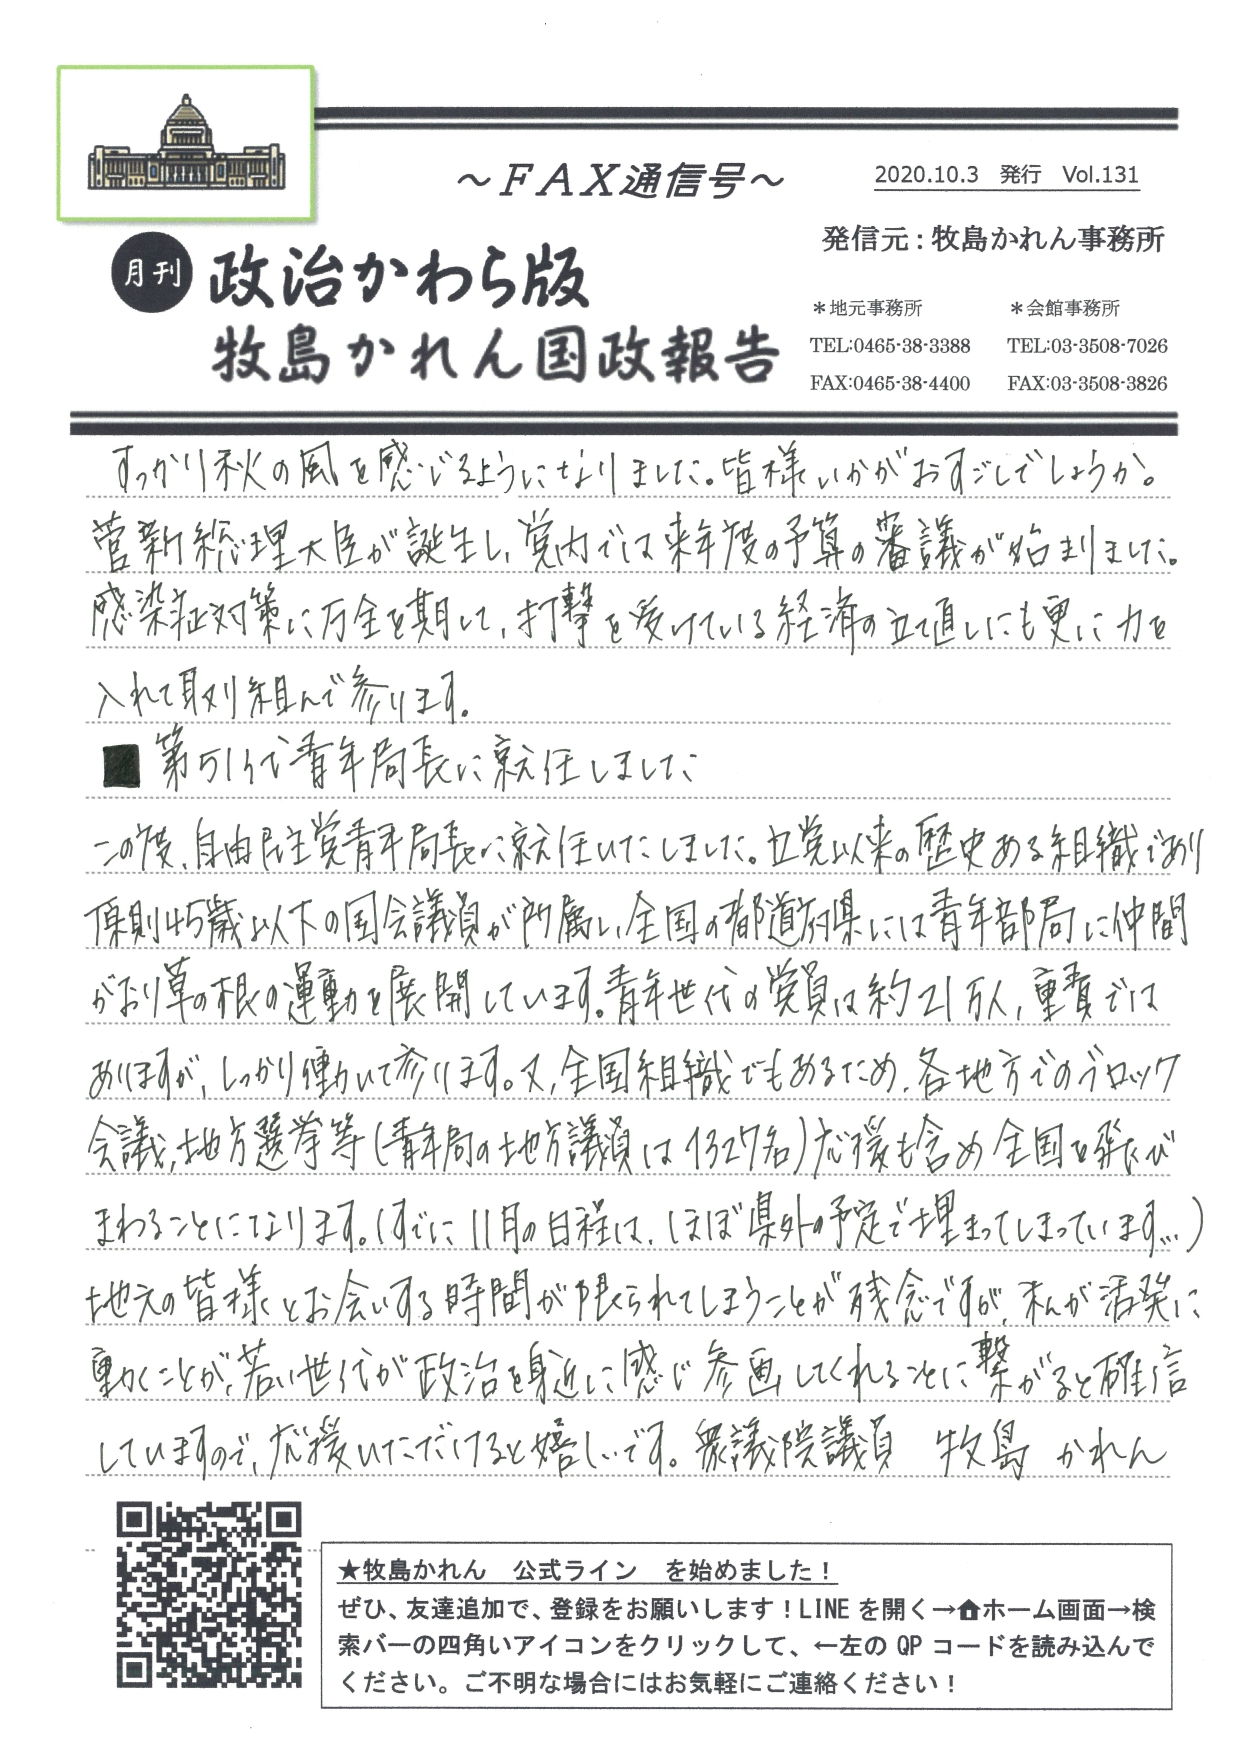 ～ＦＡＸ通信号～
2020.10.3　発行　Vol.131
発信元：牧島かれん事務所
月刊 政治かわら版
牧島かれん国政報告
＊地元事務所　＊会館事務所
TEL:0465-38-3388　TEL:03-3508-7026
FAX:0465-38-4400　FAX:03-3508-3826
すっかり秋の風を感じるようになりました。皆様いかがおすごしでしょうか。
菅新総理大臣が誕生し、党内では来年度の予算の審議が始まりました。
感染症対策に万全を期して、打撃を受けている経済の立て直しにも更に力を
入れて取り組んで参ります。
■第51代青年局長に就任しました
この度、自由民主党青年局長に就任いたしました。立党以来の歴史ある組織であり
原則45歳以下の国会議員が所属し、全国の都道府県には青年部局に仲間
がおり草の根の運動を展開しています。青年世代の党員は約21万人、重責では
ありますが、しっかり働いて参ります。又、全国組織でもあるため、各地方でのブロック
会議、地方選挙等(青年局の地方議員は1327名)応援も含め全国を飛び
まわることになります。(すでに11月の日程は、ほぼ県外の予定で埋まってしまっています…)
地元の皆様とお会いする時間が限られてしまうことが残念ですが、私が活発に
動くことが、若い世代が政治を身近に感じ参画してくれることに繋がると確信
していますので、応援いただけると嬉しいです。衆議院議員　牧島 かれん
★牧島かれん　公式ライン　を始めました！
ぜひ、友達追加で、登録をお願いします！LINEを開く→ホーム画面→検
索バーの四角いアイコンをクリックして、←左のQPコードを読み込んで
ください。ご不明な場合にはお気軽にご連絡ください！